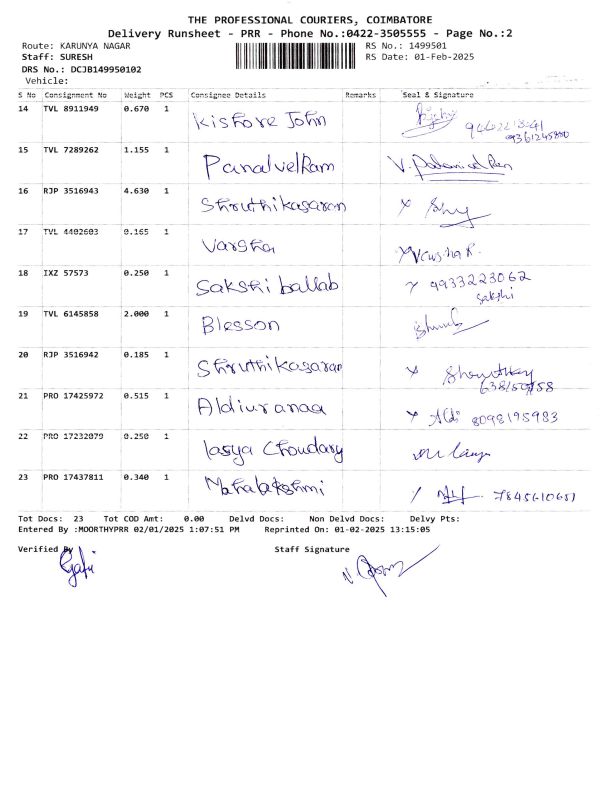 THE PROFESSIONAL COURIERS, COIMBATORE
Delivery Runsheet - PRR - Phone No.:0422-3505555 - Page No.:2
Route: KARUNYA NAGAR RS No.: 1499501
Staff: SURESH RS Date: 01-Feb-2025
DRS No.: DCJB149950102
Vehicle:
S No Consignment No Weight PCS Consignee Details Remarks Seal & Signature
14 TVL 8911949 0.670 1 Kishore John
9361245880
15 TVL 7289262 1.155 1 Panalvelkam V.
16 RJP 3516943 4.630 1 Shruthikasaran x
17 TVL 4402603 0.165 1 Varsha x Varsha R.
18 IXZ 57573 0.250 1 Sakshi ballab 9933223062
Sakshi
19 TVL 6145858 2.000 1 Blesson
20 RJP 3516942 0.185 1 Shruthikasaran x
21 PRO 17425972 0.515 1 Aldiuranaa x Aldi 8098195983
22 PRO 17232079 0.250 1 lasya Choudary
23 PRO 17437811 0.340 1 Mahalakshmi / 7845610651
Tot Docs: 23 Tot COD Amt: 0.00 Delvd Docs: Non Delvd Docs: Delvy Pts:
Entered By :MOORTHYPRR 02/01/2025 1:07:51 PM Reprinted On: 01-02-2025 13:15:05
Verified By Staff Signature